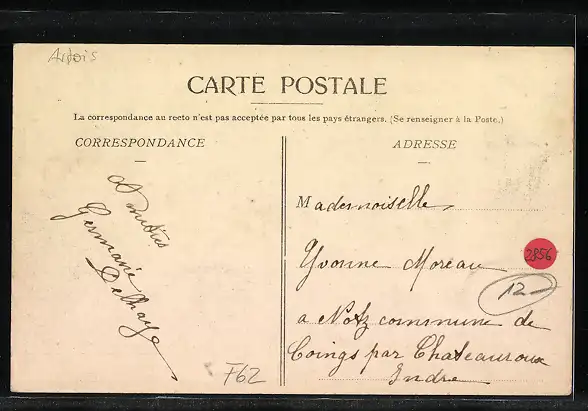 Artois
CARTE POSTALE
La correspondance au recto n'est pas acceptée par tous les pays étrangers. (Se renseigner à la Poste.)
CORRESPONDANCE
Amitiés
Germaine
Delhaye
F62
ADRESSE
Mademoiselle,
Yvonne Moreau
2856
12
a Notz commune de
Coings par Chateauroux
Indre